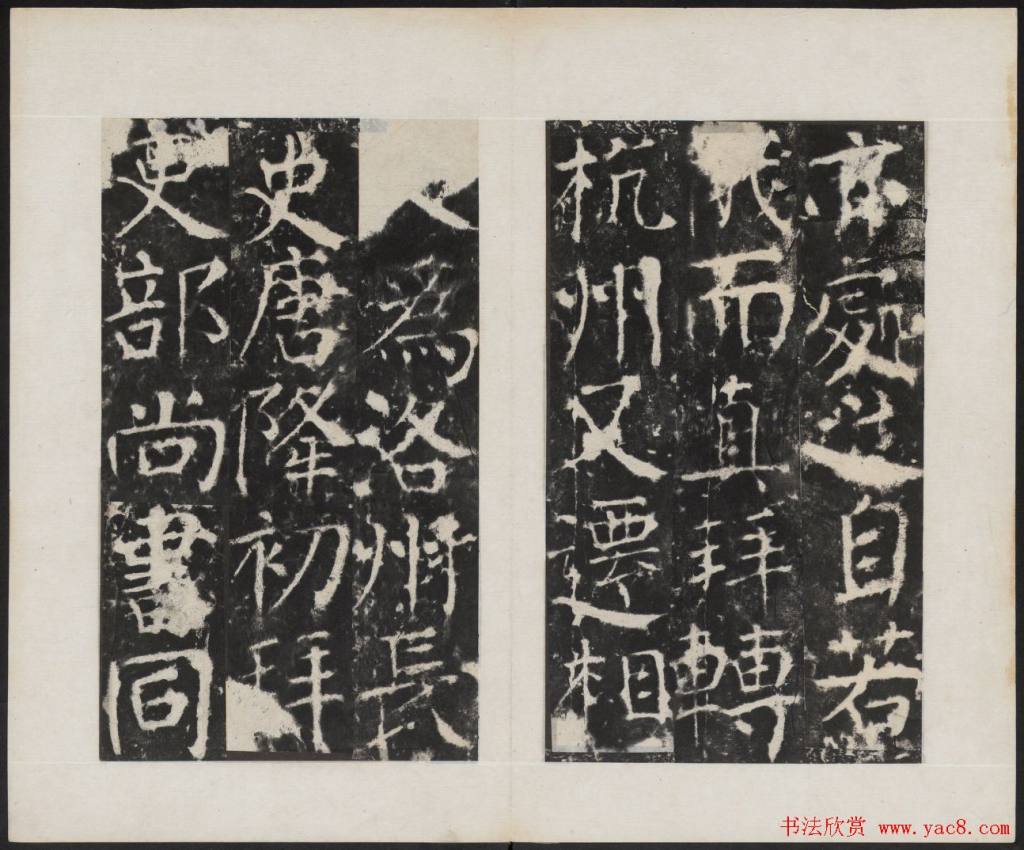 亦處之自若
俄而真拜轉
杭州又遷相
入為洛州長
史唐隆初拜
吏部尚書同
书法欣赏 www.yac8.com